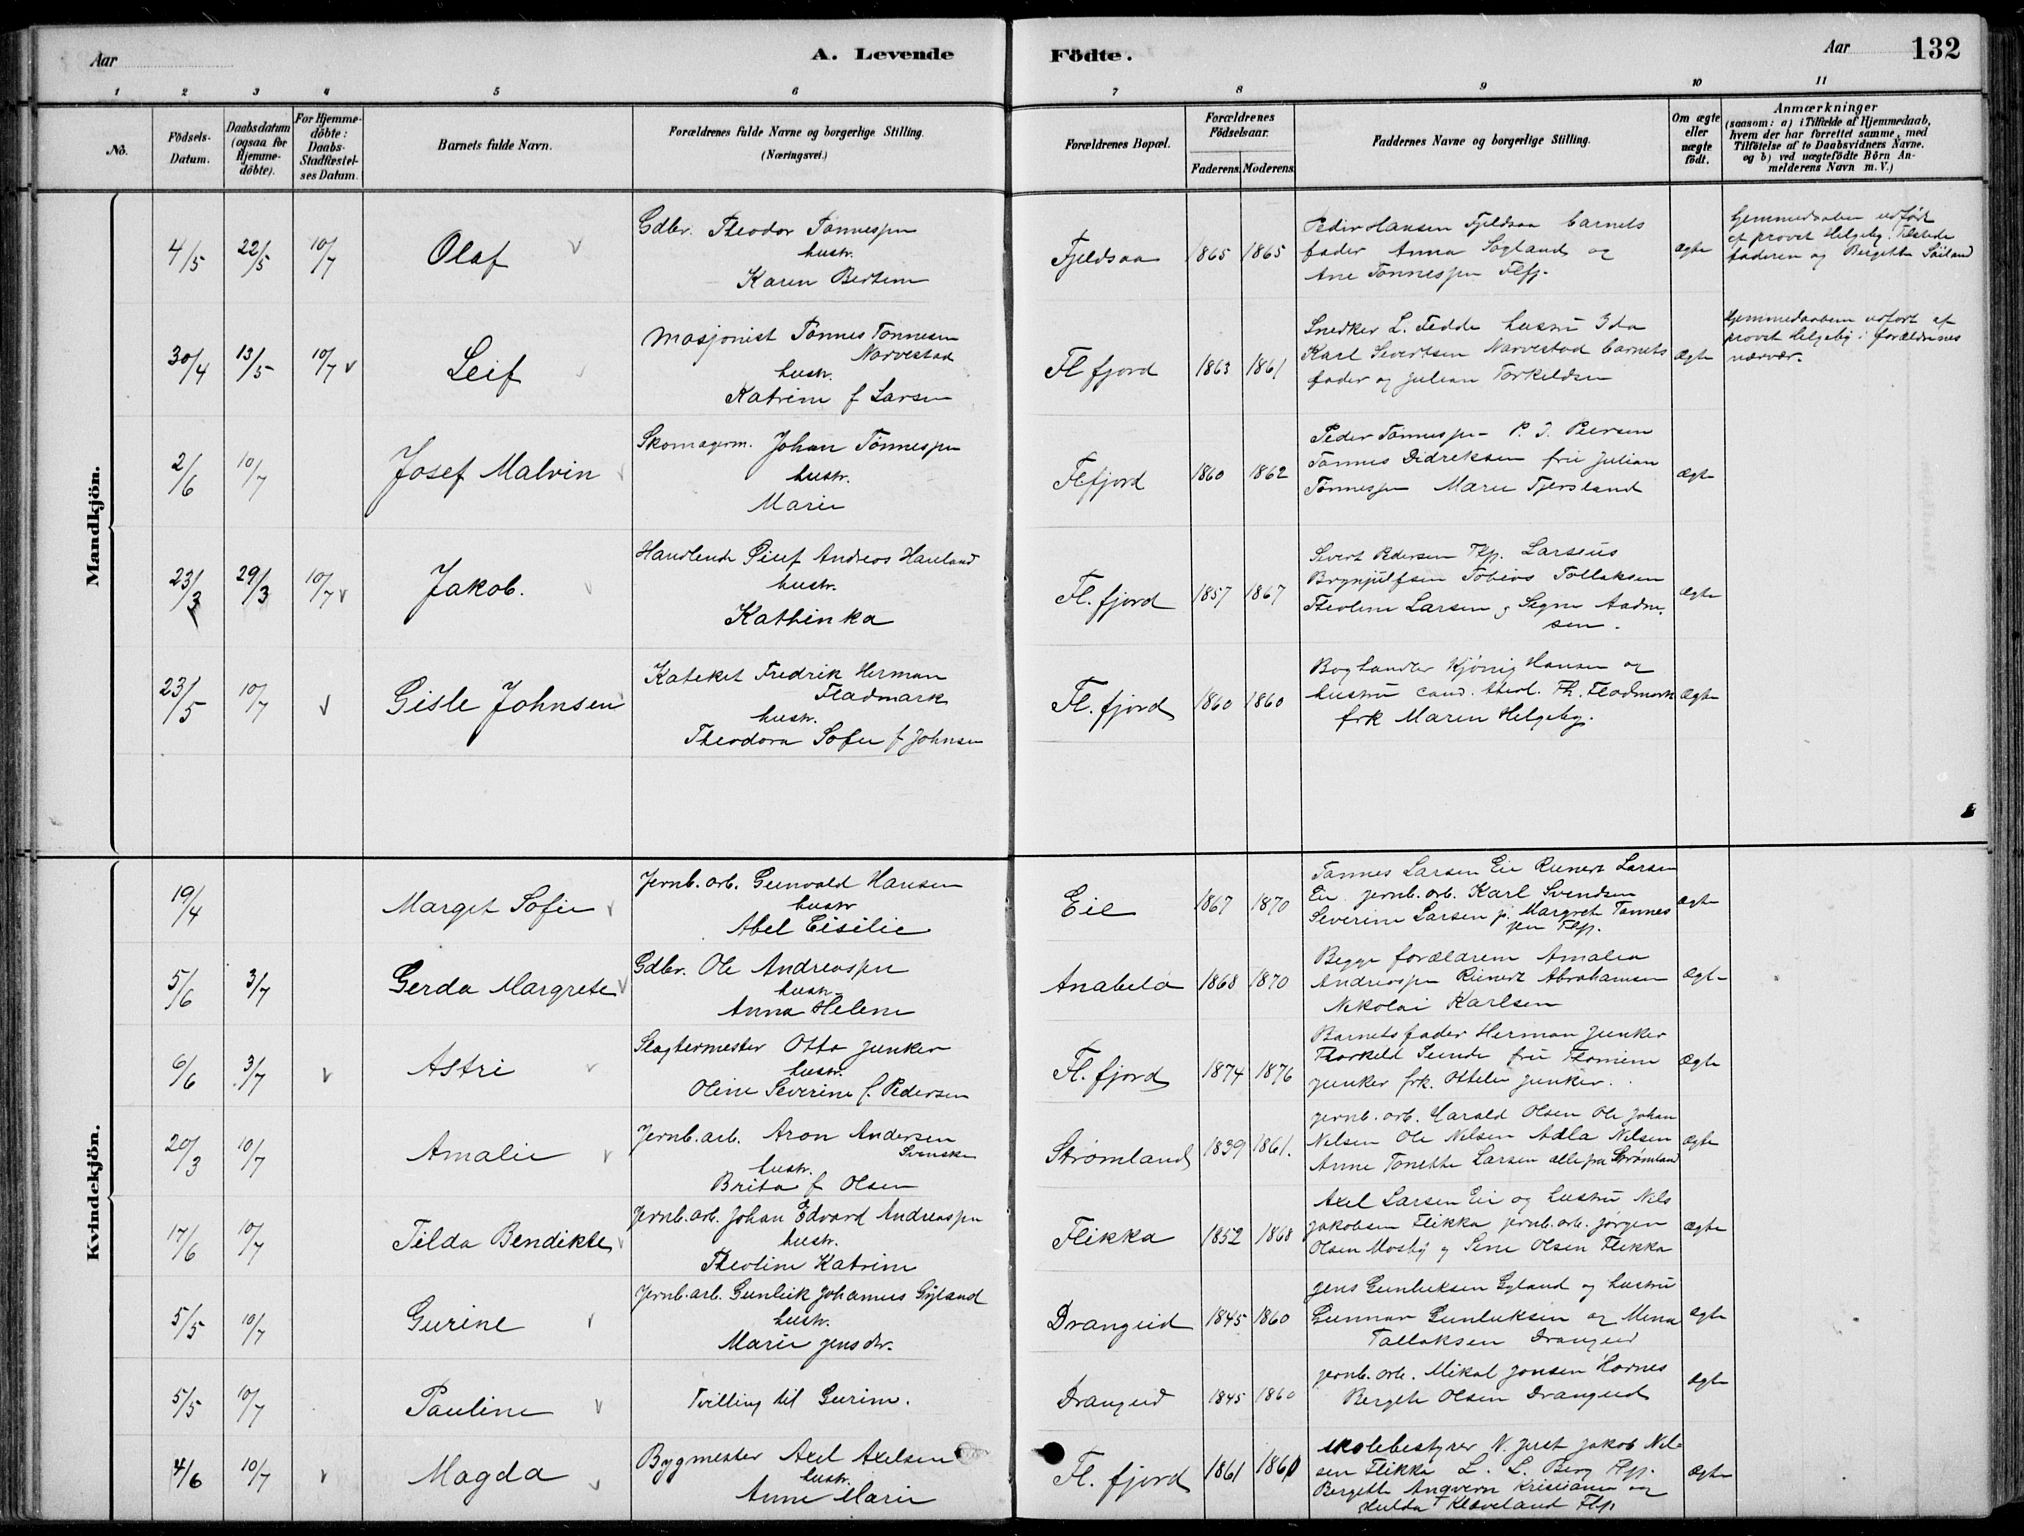 Aar
A. Levende
Födte.
Aar
132
1 2 3 4 5 6 7 8 9 10 11
No.
Födsels-
Datum.
Daabsdatum
(ogsaa for
Hjemme-
döbte).
For Hjemme-
döbte:
Daabs-
Stadfæstel-
ses Datum.
Barnets fulde Navn.
Forældrenes fulde Navne og borgerlige Stilling.
(Næringsvei.)
Forældrenes Bopæl.
Forældrenes
Födselsaar.
Faderens. Moderens.
Faddernes Navne og borgerlige Stilling.
Om ægte
eller
uægte
födt.
Anmærkninger
(saasom: a) i Tilfælde af Hjemmedaab,
hvem der har forrettet samme, med
Tilföielse af to Daabsvidners Navne.
og b) ved uægtefödte Börn An-
melderens Navn m. V.)
Mandkjön.
4/5 22/5 10/7 Olaf
Gdbr. Theodor Tønnessen
hustr.
Karen Bertine
Fjeldsaa 1865 1865
Peder Hansen Fjeldsaa barnets
fader Anna Søyland og
Ane Tønnessen Flfj.
ægte
Hjemmedaaben udført
af provst Helgeby. Tilstede
faderen og Bergette Søiland
30/4 13/5 10/7 Leif
Masjonist Tønnes Tønnesen
Narvestad
hustr.
Katrine f Larsen
Fl fjord 1863 1861
Snedker L. Fedde hustru Ida
Karl Sivertsen Narvestad barnets
fader og Julian Torkeldsen
ægte
Hjemmedaaben udført af
provst Helgeby i forældrenes
nærvær.
2/6 10/7 Josef Malvin
Skomagerm. Johan Tønnessen
hustr.
Marie
Flfjord 1860 1862
Peder Tønnessen P. J. Peersen
Tønnes Didreksen fru Julian
Tønnessen Marie Fjersland
ægte
23/3 29/3 10/7 Jakob.
Handlende Andreas Hauland
hustr.
Kathinka
Fl. fjord 1857 1867
Sivert Pedersen Flfj. Larseus
Brynjulfsen Tobias Tollaksen
Theoline Larsen g Signe Aadne-
sen.
ægte
23/5 10/7 Gisle Johnsen
Kateket Fredrik Herman
Fladmark
hustr.
Theodora Sofie f Johnsen
Fl. fjord 1860 1860
Boghandler Kjønig Hansen og
hustru cand. theol. Th. Fladmark
frk Maren Helgeby.
ægte
Kvindekjön.
19/4 Marget Sofie
Jernb. arb. Gunvald Hansen
hustr
Abel Cisilie
Eie 1867 1870
Tønnes Larsen Eie Reinert Larsen
Eie jernb. arb. Karl Svendsen
Severine Larsen p. Margret Tønnes
sen Flfj.
ægte
5/6 3/7 Gerda Margrete
Gdbr. Ole Andreassen
hustr.
Anna Helene
Anabelø 1868 1870
Begge forælarene Amalia
Andreassen Reinert Abrahamsen
Nikolai Karlsen
ægte
6/6 3/7 Astri
Slagtermester Otto Junker
hustr.
Oline Severine f. Pedersen
Fl. fjord 1874 1876
Barnets fader Herman Junker
Thorkeld Sunde fru Thomine
Junker frk. Ottele Junker.
ægte
20/3 10/7 Amalie
Jernb. arb. Aron Andersen
Svenske
hustr.
Brita f Olsen
Strømland 1839 1861.
Jernb. arb. Harald Olsen Ole Johan
Nilsen Ole Nilsen Adla Nilsen
Anne Tonette Larsen alle fra Strømland
ægte
17/6 10/7 Tilda Bendikte
Jernb. arb. Johan Edvard Andreassen
hustr.
Theoline Katrine
Flikka 1852 1868
Axel Larsen Eie og hustru Nils
Jakobsen Flikka jernb. arb. Jørgen
Olsen Mosby g Sine Olsen Flikka
ægte
5/5 10/7 Gurine
Jernb. arb. Gunleik Johannes Gyland
hustr.
Marie Jensdtr.
Drangeid 1845 1860
Jens Gunleiksen Gyland og hustru
Gunnar Gunleiksen og Mena
Tallaksen Drangeid
ægte
5/5 10/7 Pauline
Tvilling til Gurine.
Drangeid 1845 1860
Jernb. arb. Mikal Jonsen Hornes
Bergete Olsen Drangeid
ægte
4/6 10/7 Magda
Bygmester Axel Axelsen
hustr.
Anne Marie
Fl. fjord 1861 1860
Skolebestyrer N. Just Jakob Nil-
sen Flikka L. L. Berg Flfj.
Bergette Angvern Kristiane og
Hulda Kleveland Flfj.
ægte